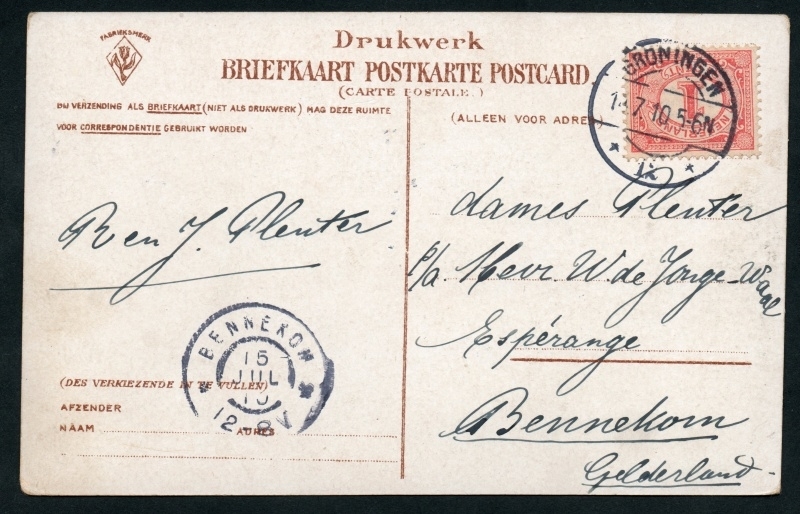 FABRIEKSMERK
Drukwerk
BRIEFKAART POSTKARTE POSTCARD
(CARTE POSTALE.)
BIJ VERZENDING ALS BRIEFKAART (NIET ALS DRUKWERK) MAG DEZE RUIMTE
VOOR CORRESPONDENTIE GEBRUIKT WORDEN
(ALLEEN VOOR ADRES)
GRONINGEN
7.10.5-6N
1
NEDERLAND
R en J. Plenter
dames Plenter
p/a Mevr. W de Jonge-Waal
Espérange
Bennekom
Gelderland.
BENNEKOM
15
JUL
10
12-8V
(DES VERKIEZENDE IN TE VULLEN)
AFZENDER
NAAM
ADRES